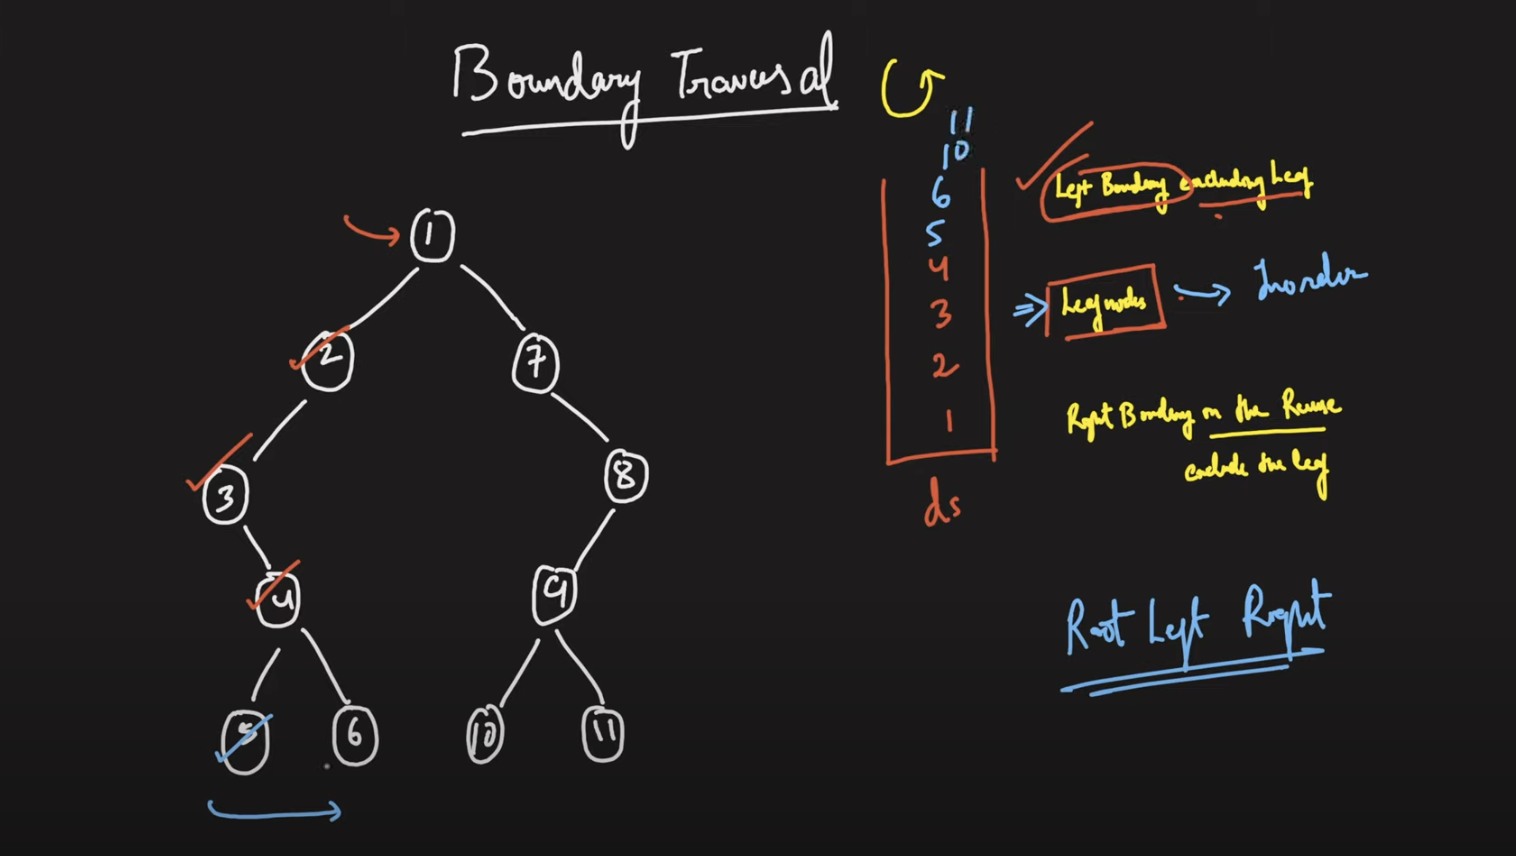 Boundary Traversal
11
10
6
5
4
3
2
1
ds
Left Boundary excluding Leaf
Leaf nodes
Inorder
Right Boundary on the Reverse
exclude the leaf
Root Left Right
1
2
7
3
8
4
9
5
6
10
11